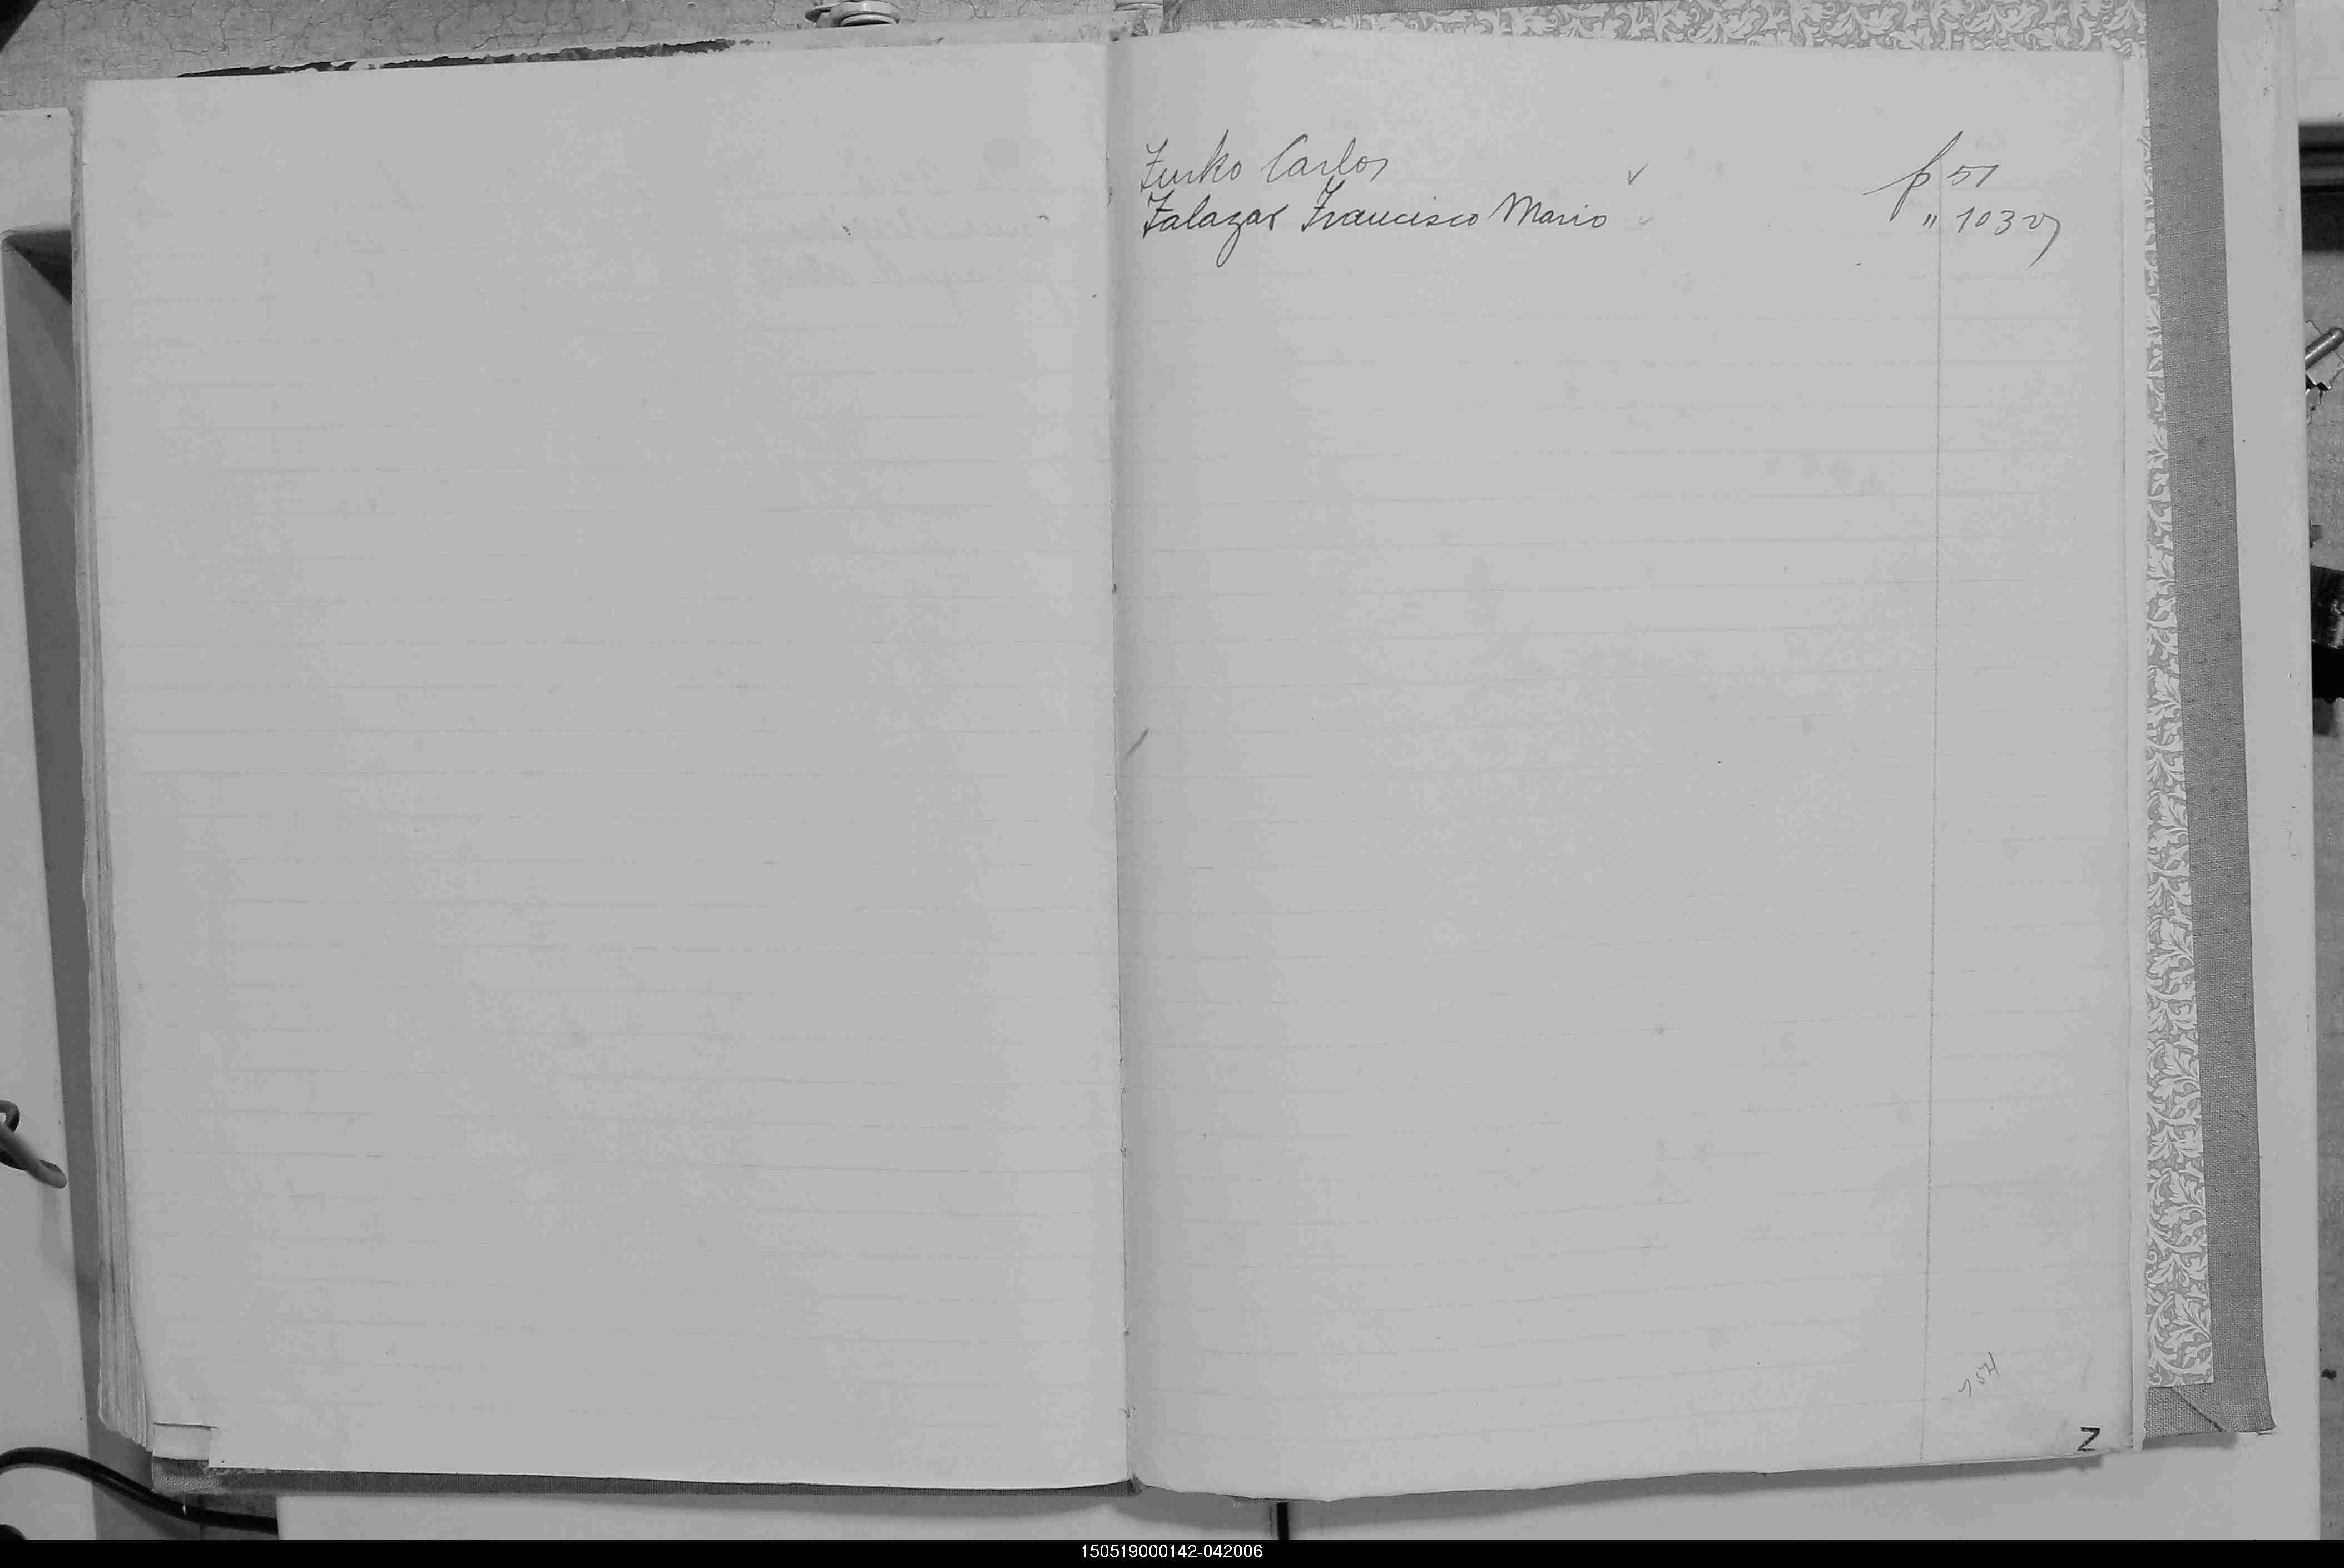 Zurko Carlos ✓ f 51
Zalazar Francisco Mario ✓ " 103 v
154
Z
150519000142-042006